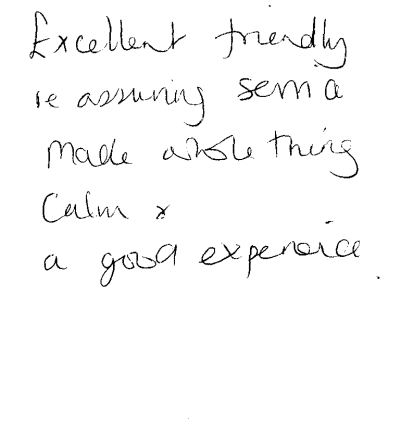 Excellent friendly
reassuring
made whole thing
Calm &
a good experience.